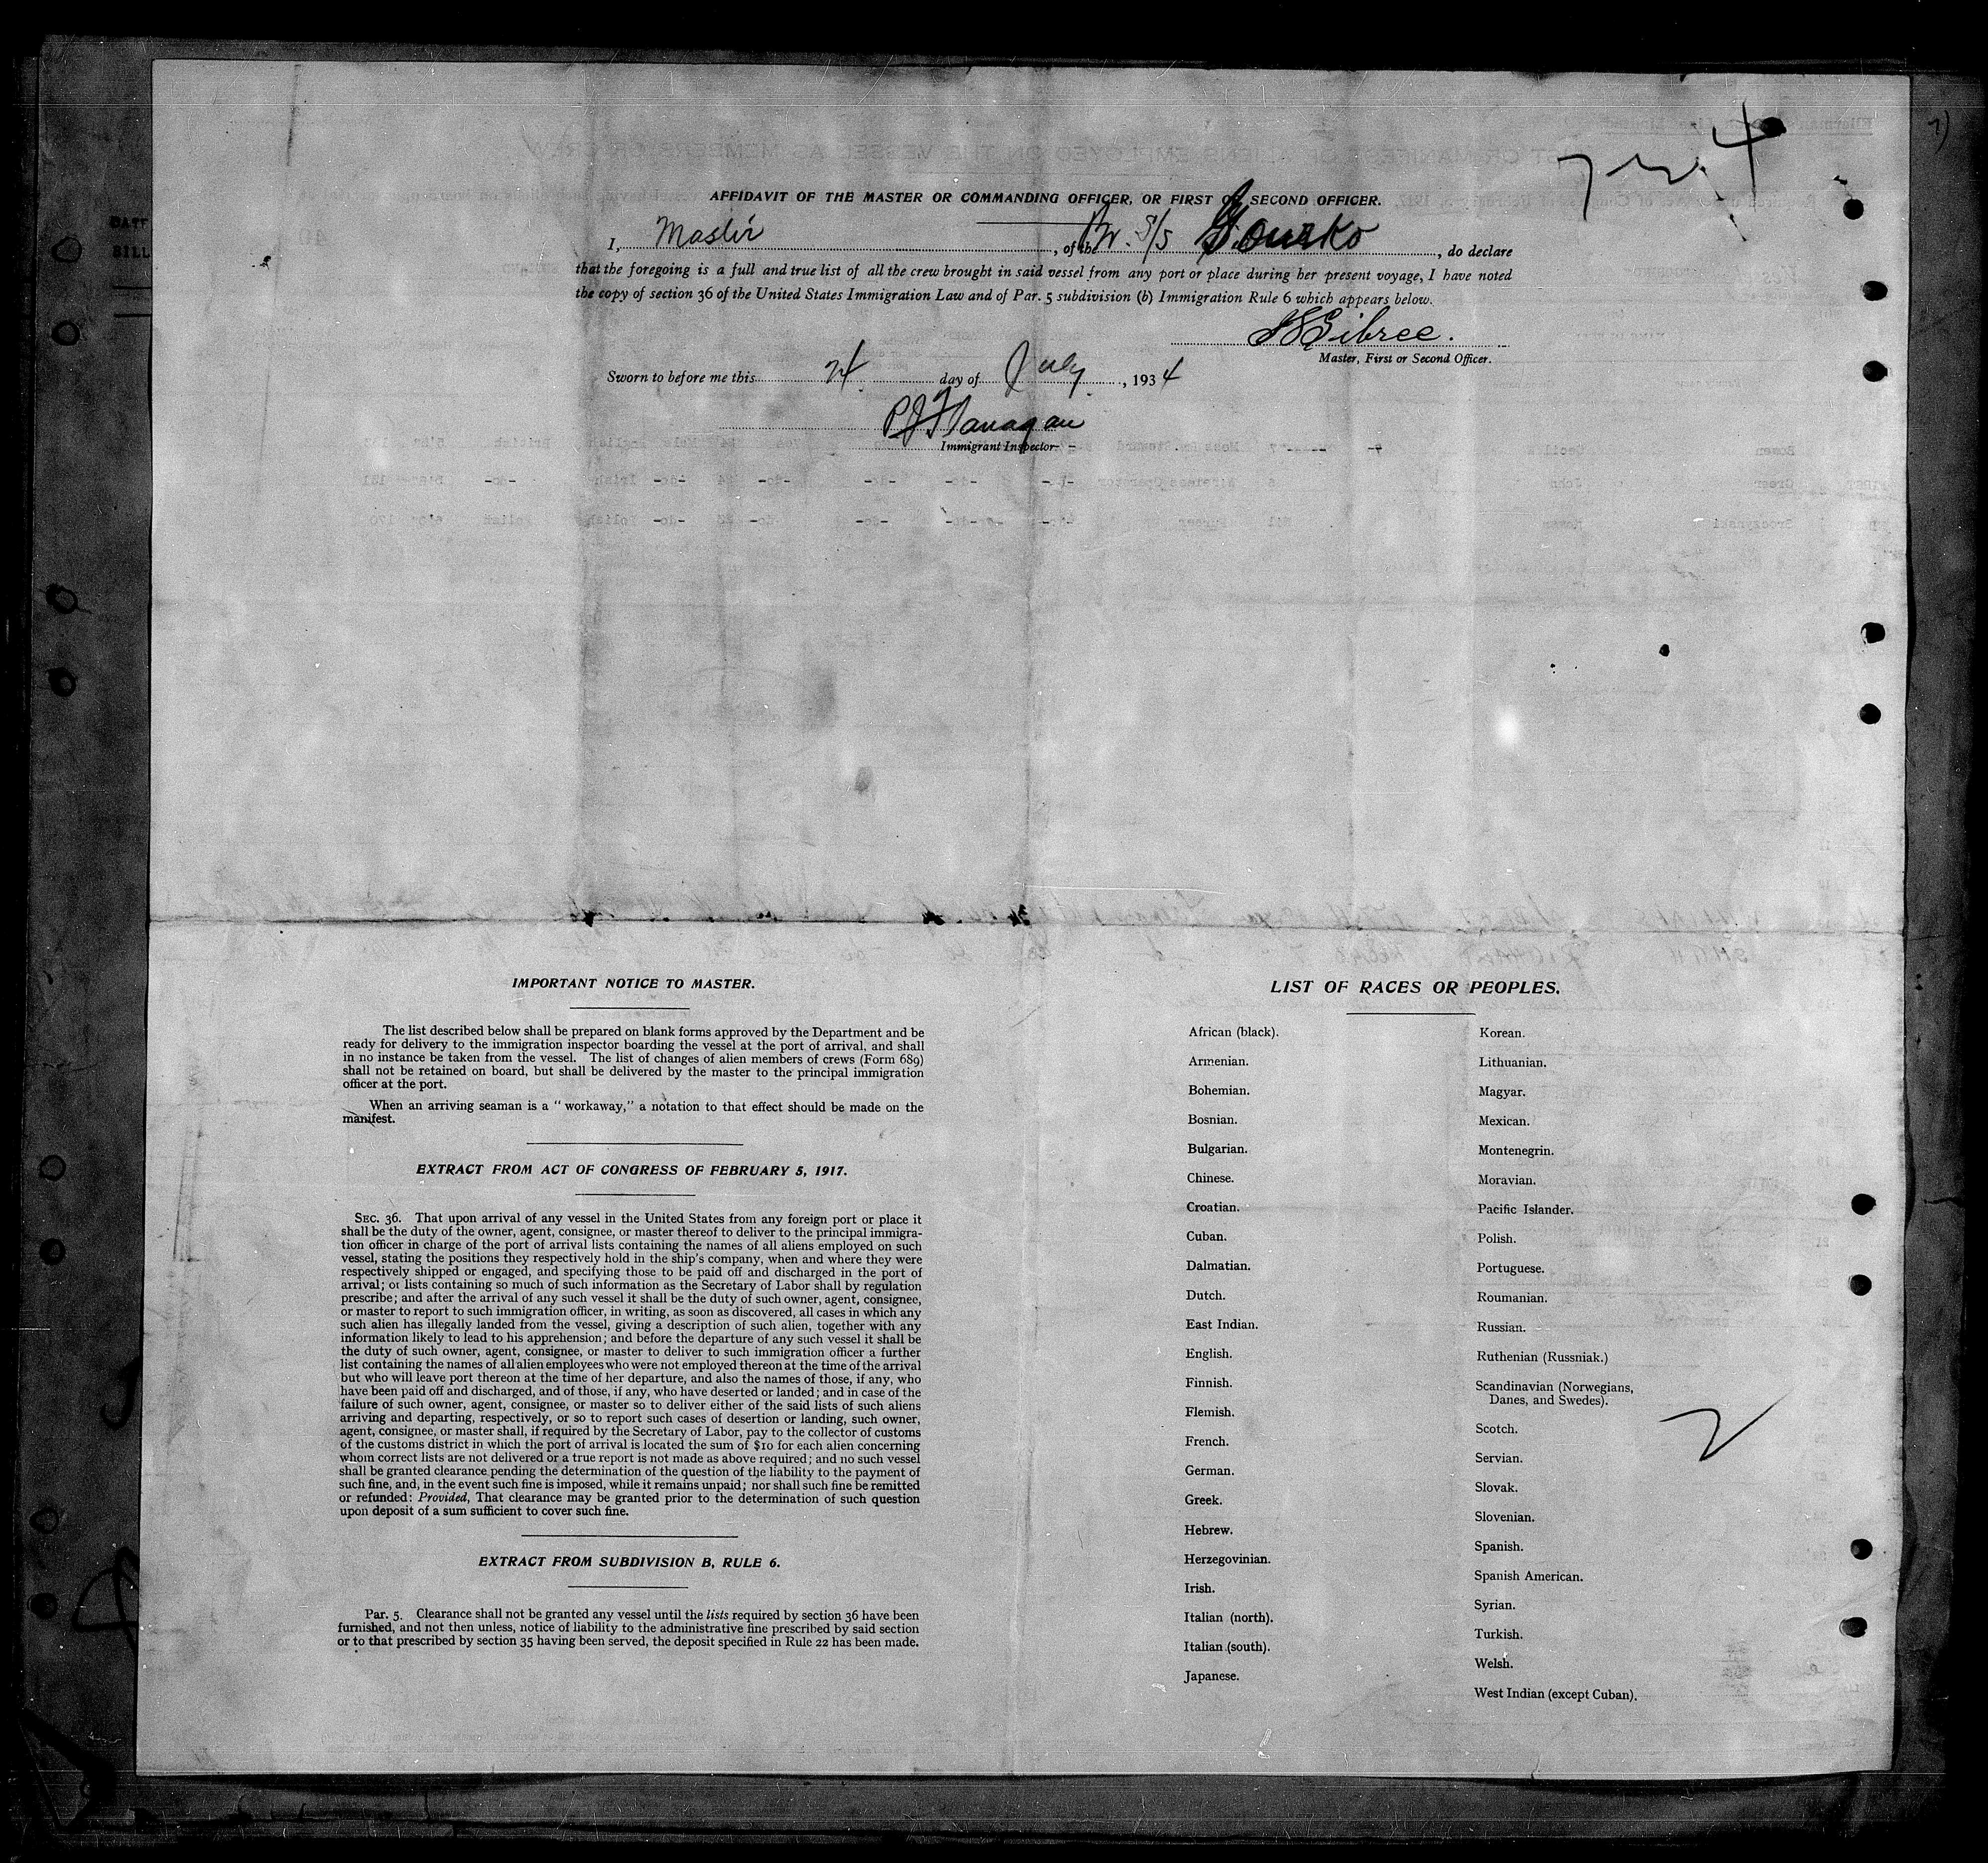 AFFIDAVIT OF THE MASTER OR COMMANDING OFFICER, OR FIRST OR SECOND OFFICER.
I, Master, of the Br. S/S Gourko, do declare
that the foregoing is a full and true list of all the crew brought in said vessel from any port or place during her present voyage, I have noted
the copy of section 36 of the United States Immigration Law and of Par. 5 subdivision (b) Immigration Rule 6 which appears below.
Master, First or Second Officer.
Sworn to before me this day of July, 1934
P J Flanagan
Immigrant Inspector
IMPORTANT NOTICE TO MASTER.
The list described below shall be prepared on blank forms approved by the Department and be
ready for delivery to the immigration inspector boarding the vessel at the port of arrival, and shall
in no instance be taken from the vessel. The list of changes of alien members of crews (Form 689)
shall not be retained on board, but shall be delivered by the master to the principal immigration
officer at the port.
When an arriving seaman is a "workaway," a notation to that effect should be made on the
manifest.
EXTRACT FROM ACT OF CONGRESS OF FEBRUARY 5, 1917.
SEC. 36. That upon arrival of any vessel in the United States from any foreign port or place it
shall be the duty of the owner, agent, consignee, or master thereof to deliver to the principal immigra-
tion officer in charge of the port of arrival lists containing the names of all aliens employed on such
vessel, stating the positions they respectively hold in the ship's company, when and where they were
respectively shipped or engaged, and specifying those to be paid off and discharged in the port of
arrival; or lists containing so much of such information as the Secretary of Labor shall by regulation
prescribe; and after the arrival of any such vessel it shall be the duty of such owner, agent, consignee,
or master to report to such immigration officer, in writing, as soon as discovered, all cases in which any
such alien has illegally landed from the vessel, giving a description of such alien, together with any
information likely to lead to his apprehension; and before the departure of any such vessel it shall be
the duty of such owner, agent, consignee, or master to deliver to such immigration officer a further
list containing the names of all alien employees who were not employed thereon at the time of the arrival
but who will leave port thereon at the time of her departure, and also the names of those, if any, who
have been paid off and discharged, and of those, if any, who have deserted or landed; and in case of the
failure of such owner, agent, consignee, or master so to deliver either of the said lists of such aliens
arriving and departing, respectively, or so to report such cases of desertion or landing, such owner,
agent, consignee, or master shall, if required by the Secretary of Labor, pay to the collector of customs
of the customs district in which the port of arrival is located the sum of $10 for each alien concerning
whom correct lists are not delivered or a true report is not made as above required; and no such vessel
shall be granted clearance pending the determination of the question of the liability to the payment of
such fine, and, in the event such fine is imposed, while it remains unpaid; nor shall such fine be remitted
or refunded: Provided, That clearance may be granted prior to the determination of such question
upon deposit of a sum sufficient to cover such fine.
EXTRACT FROM SUBDIVISION B, RULE 6.
Par. 5. Clearance shall not be granted any vessel until the lists required by section 36 have been
furnished, and not then unless, notice of liability to the administrative fine prescribed by said section
or to that prescribed by section 35 having been served, the deposit specified in Rule 22 has been made.
LIST OF RACES OR PEOPLES.
African (black).
Armenian.
Bohemian.
Bosnian.
Bulgarian.
Chinese.
Croatian.
Cuban.
Dalmatian.
Dutch.
East Indian.
English.
Finnish.
Flemish.
French.
German.
Greek.
Hebrew.
Herzegovinian.
Irish.
Italian (north).
Italian (south).
Japanese.
Korean.
Lithuanian.
Magyar.
Mexican.
Montenegrin.
Moravian.
Pacific Islander.
Polish.
Portuguese.
Roumanian.
Russian.
Ruthenian (Russniak.)
Scandinavian (Norwegians,
Danes, and Swedes).
Scotch.
Servian.
Slovak.
Slovenian.
Spanish.
Spanish American.
Syrian.
Turkish.
Welsh.
West Indian (except Cuban).